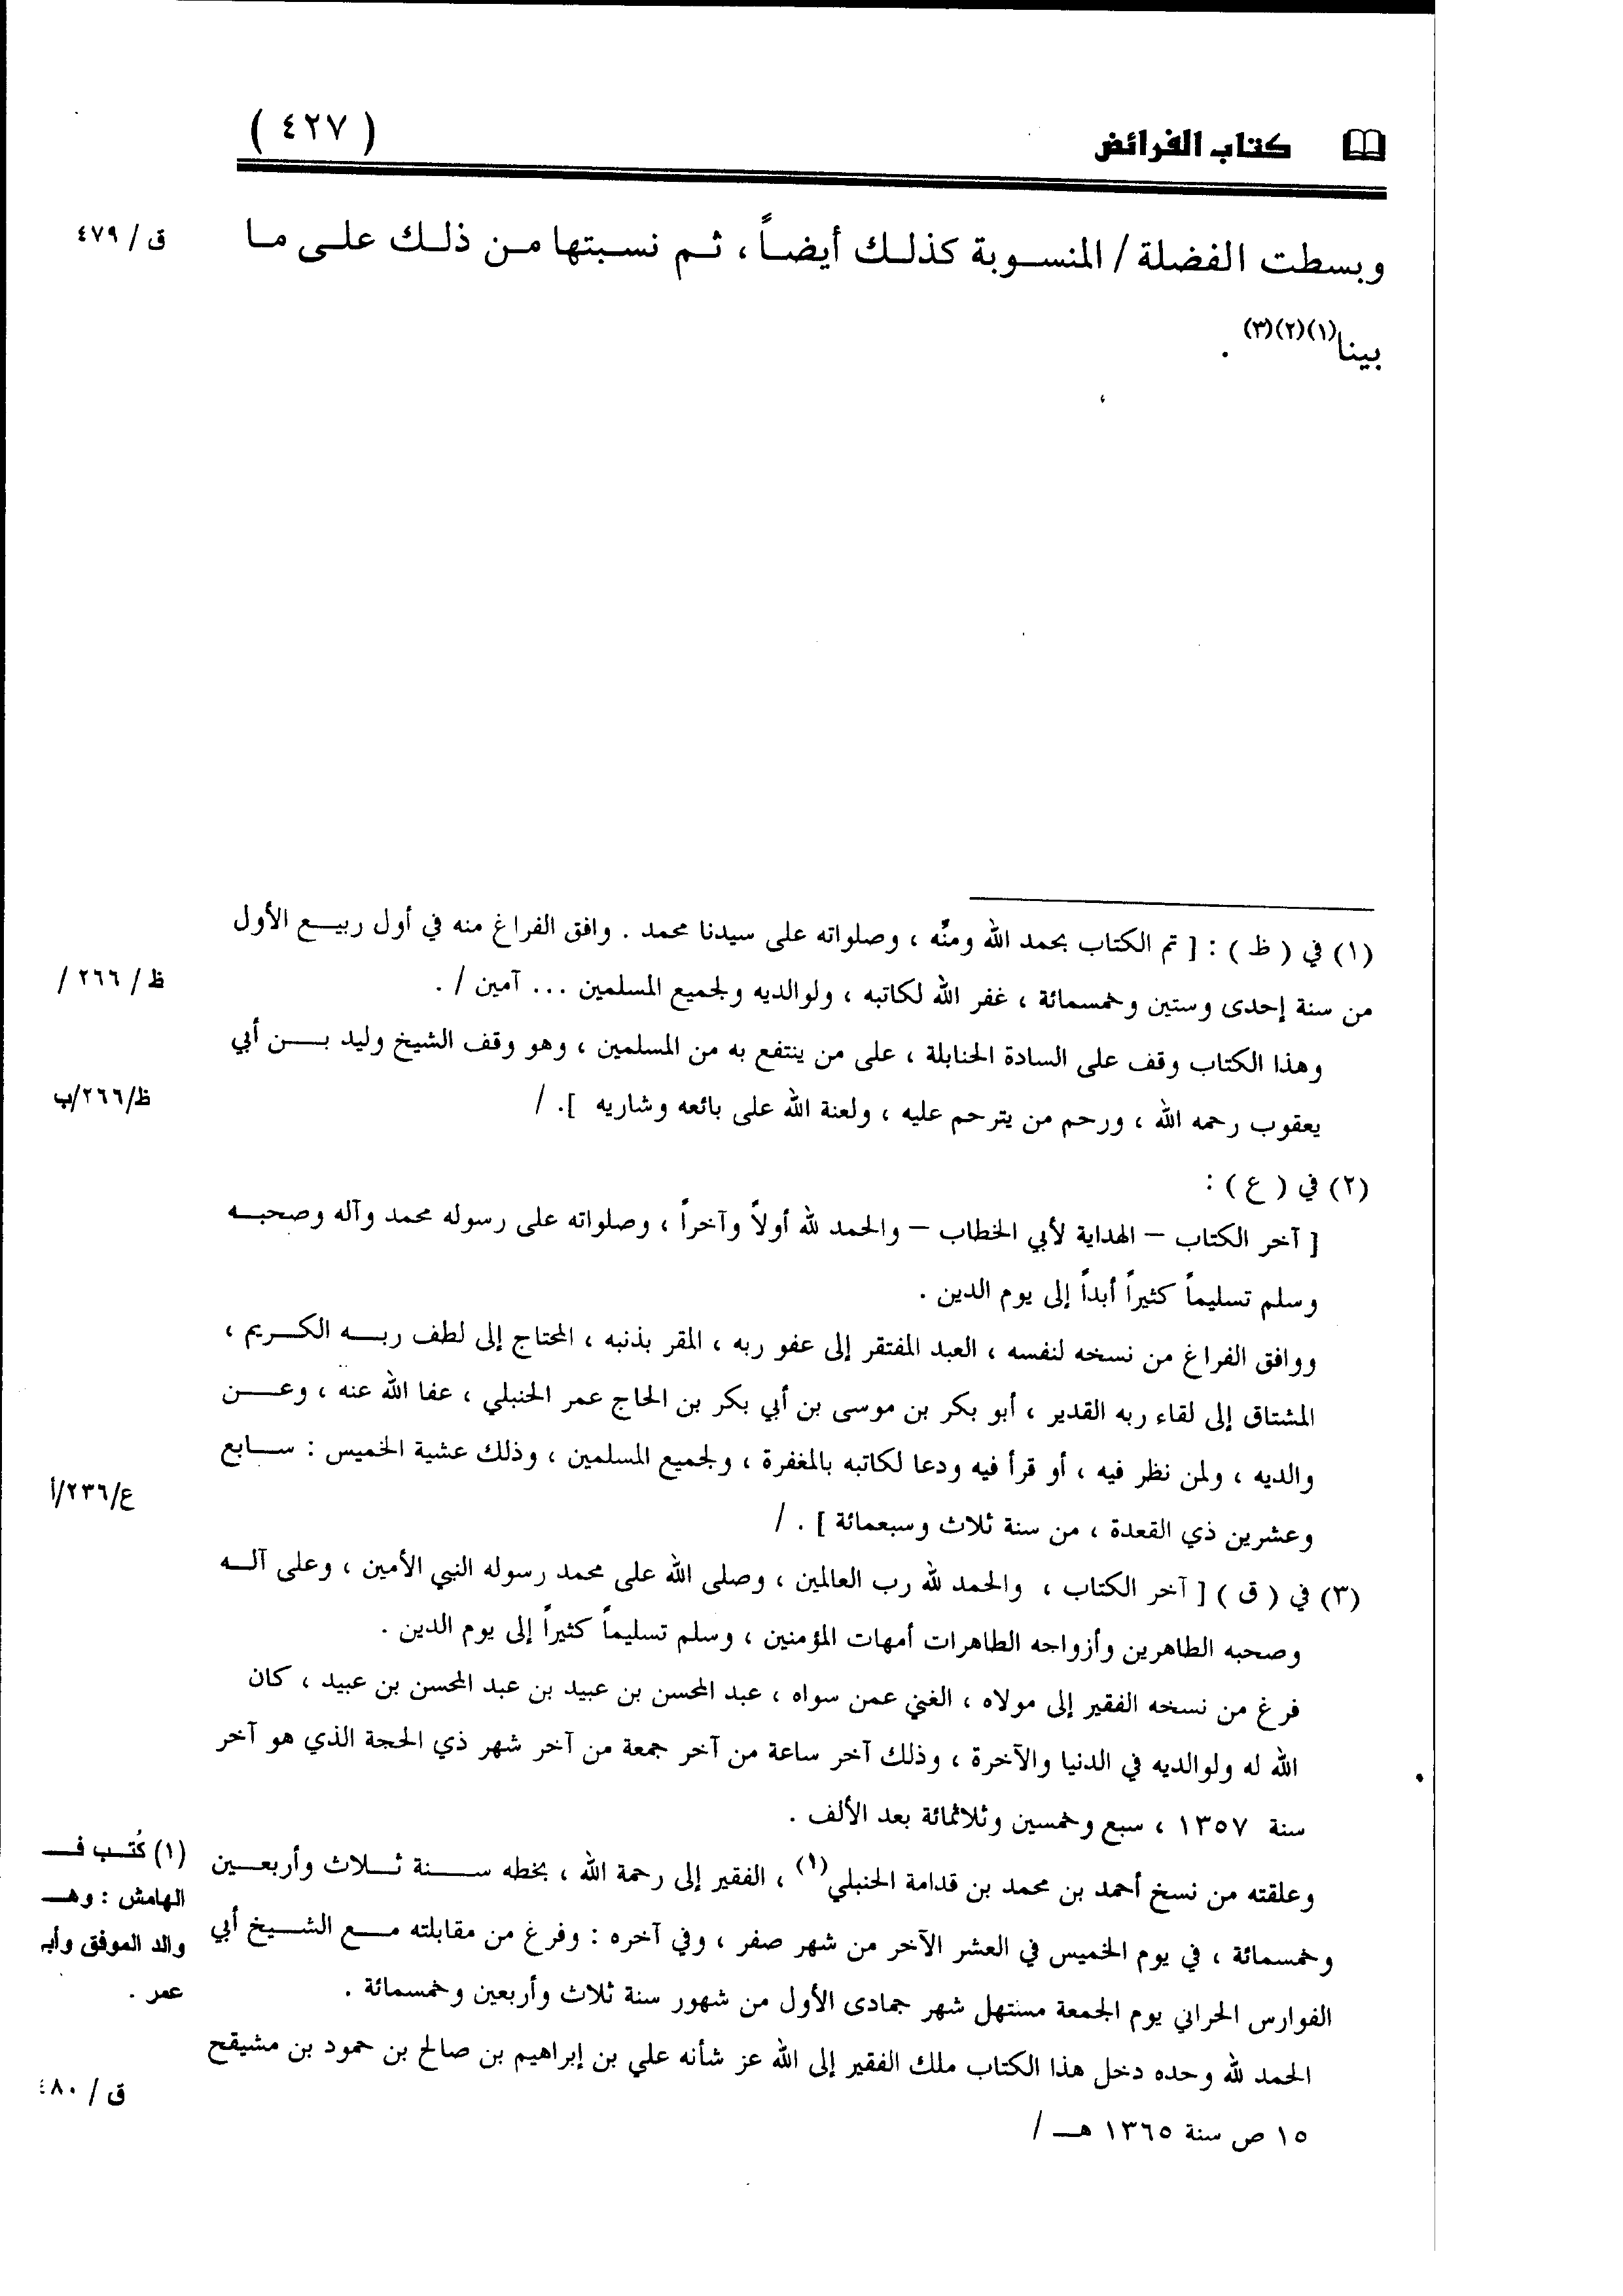 كتاب الفرائض
( ٤٢٧ )
وبسطت الفضلة / المنسوبة كذلك أيضاً ، ثم نسبتها من ذلك على ما
ق / ٤٧٩
بينا(١)(٢)(٣) .
(١) في ( ظ ) : [ تم الكتاب بحمد الله ومنِّه ، وصلواته على سيدنا محمد . وافق الفراغ منه في أول ربيع الأول
من سنة إحدى وستين وخمسمائة ، غفر الله لكاتبه ، ولوالديه ولجميع المسلمين ... آمين / .
ظ / ٢٦٦ /
وهذا الكتاب وقف على السادة الحنابلة ، على من ينتفع به من المسلمين ، وهو وقف الشيخ وليد بن أبي
يعقوب رحمه الله ، ورحم من يترحم عليه ، ولعنة الله على بائعه وشاريه ]. /
ظ/٢٦٦/ب
(٢) في ( ع ) :
[ آخر الكتاب – الهداية لأبي الخطاب – والحمد لله أولاً وآخراً ، وصلواته على رسوله محمد وآله وصحبه
وسلم تسليماً كثيراً أبداً إلى يوم الدين .
ووافق الفراغ من نسخه لنفسه ، العبد المفتقر إلى عفو ربه ، المقر بذنبه ، المحتاج إلى لطف ربه الكريم ،
المشتاق إلى لقاء ربه القدير ، أبو بكر بن موسى بن أبي بكر بن الحاج عمر الحنبلي ، عفا الله عنه ، وعن
والديه ، ولمن نظر فيه ، أو قرأ فيه ودعا لكاتبه بالمغفرة ، ولجميع المسلمين ، وذلك عشية الخميس : سابع
وعشرين ذي القعدة ، من سنة ثلاث وسبعمائة ] . /
ع/٢٣٦/أ
(٣) في ( ق ) [ آخر الكتاب ، والحمد لله رب العالمين ، وصلى الله على محمد رسوله النبي الأمين ، وعلى آله
وصحبه الطاهرين وأزواجه الطاهرات أمهات المؤمنين ، وسلم تسليماً كثيراً إلى يوم الدين .
فرغ من نسخه الفقير إلى مولاه ، الغني عمن سواه ، عبد المحسن بن عبيد بن عبد المحسن بن عبيد ، كان
الله له ولوالديه في الدنيا والآخرة ، وذلك آخر ساعة من آخر جمعة من آخر شهر ذي الحجة الذي هو آخر
سنة ١٣٥٧ ، سبع وخمسين وثلاثمائة بعد الألف .
وعلقته من نسخ أحمد بن محمد بن قدامة الحنبلي(١) ، الفقير إلى رحمة الله ، بخطه سنة ثلاث وأربعين
وخمسمائة ، في يوم الخميس في العشر الآخر من شهر صفر ، وفي آخره : وفرغ من مقابلته مع الشيخ أبي
الفوارس الحراني يوم الجمعة مستهل شهر جمادى الأول من شهور سنة ثلاث وأربعين وخمسمائة .
الحمد لله وحده دخل هذا الكتاب ملك الفقير إلى الله عز شأنه علي بن إبراهيم بن صالح بن حمود بن مشيقح
١٥ ص سنة ١٣٦٥ هـ /
(١) كُتب فـ
الهامش : وهـ
والد الموفق وأبـ
عمر .
ق / ٤٨٠